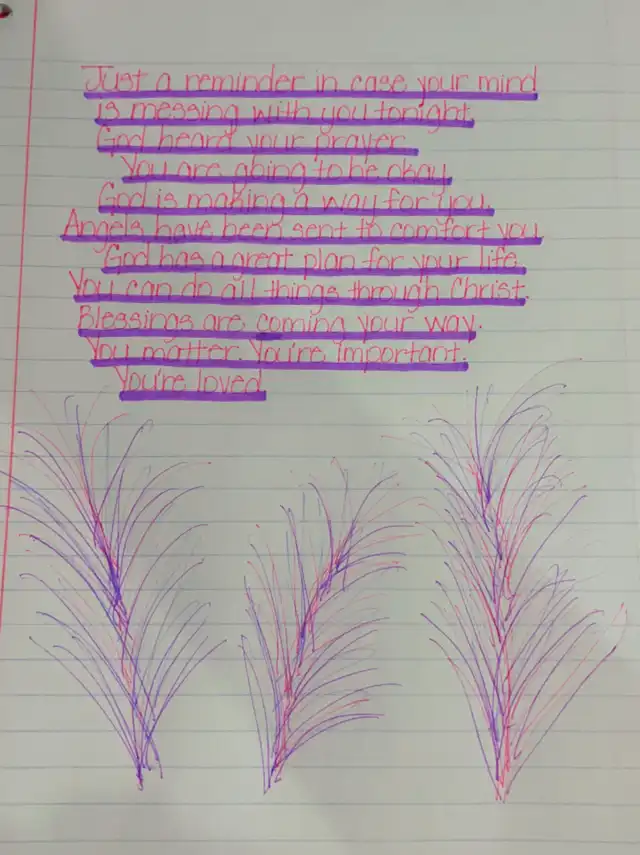 Just a reminder in case your mind
is messing with you tonight.
God heard your prayer.
You are going to be okay.
God is making a way for you.
Angels have been sent to comfort you.
God has a great plan for your life.
You can do all things through Christ.
Blessings are coming your way.
You matter. You're important.
You're loved